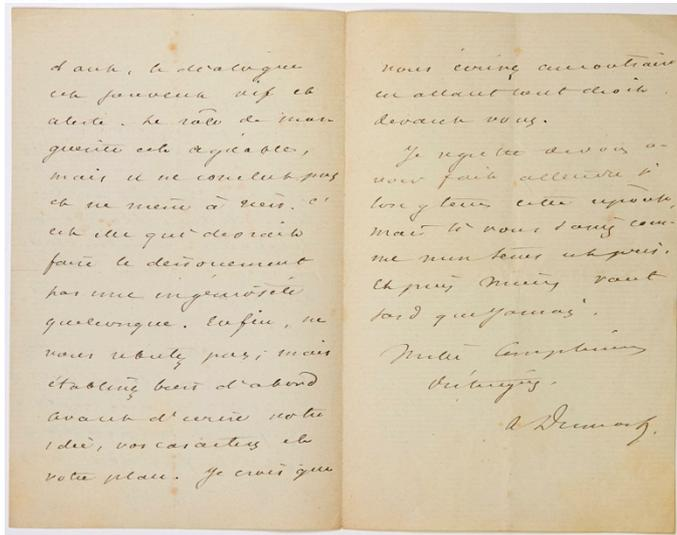 dant, le dialogue
est souvent vif et
alerte. Le rôle de Mar
guerite est agréable,
mais il ne conclut pas
et ne mène à rien. C'
est elle qui devrait
faire le dénouement
par une ingéniosité
quelconque. Enfin, ne
vous rebutez pas; mais
établissez bien d'abord
avant d'écrire votre
idée, vos caractères et
votre plan. Je crois que
vous écririez au contraire
en allant tout droit
devant vous.
Je regrette de vous a-
voir fait attendre si
longtemps cette réponse,
mais si vous saviez com-
me mon temps est pris.
Et puis mieux vaut
tard que jamais.
Mille compliments
A Dumas f.